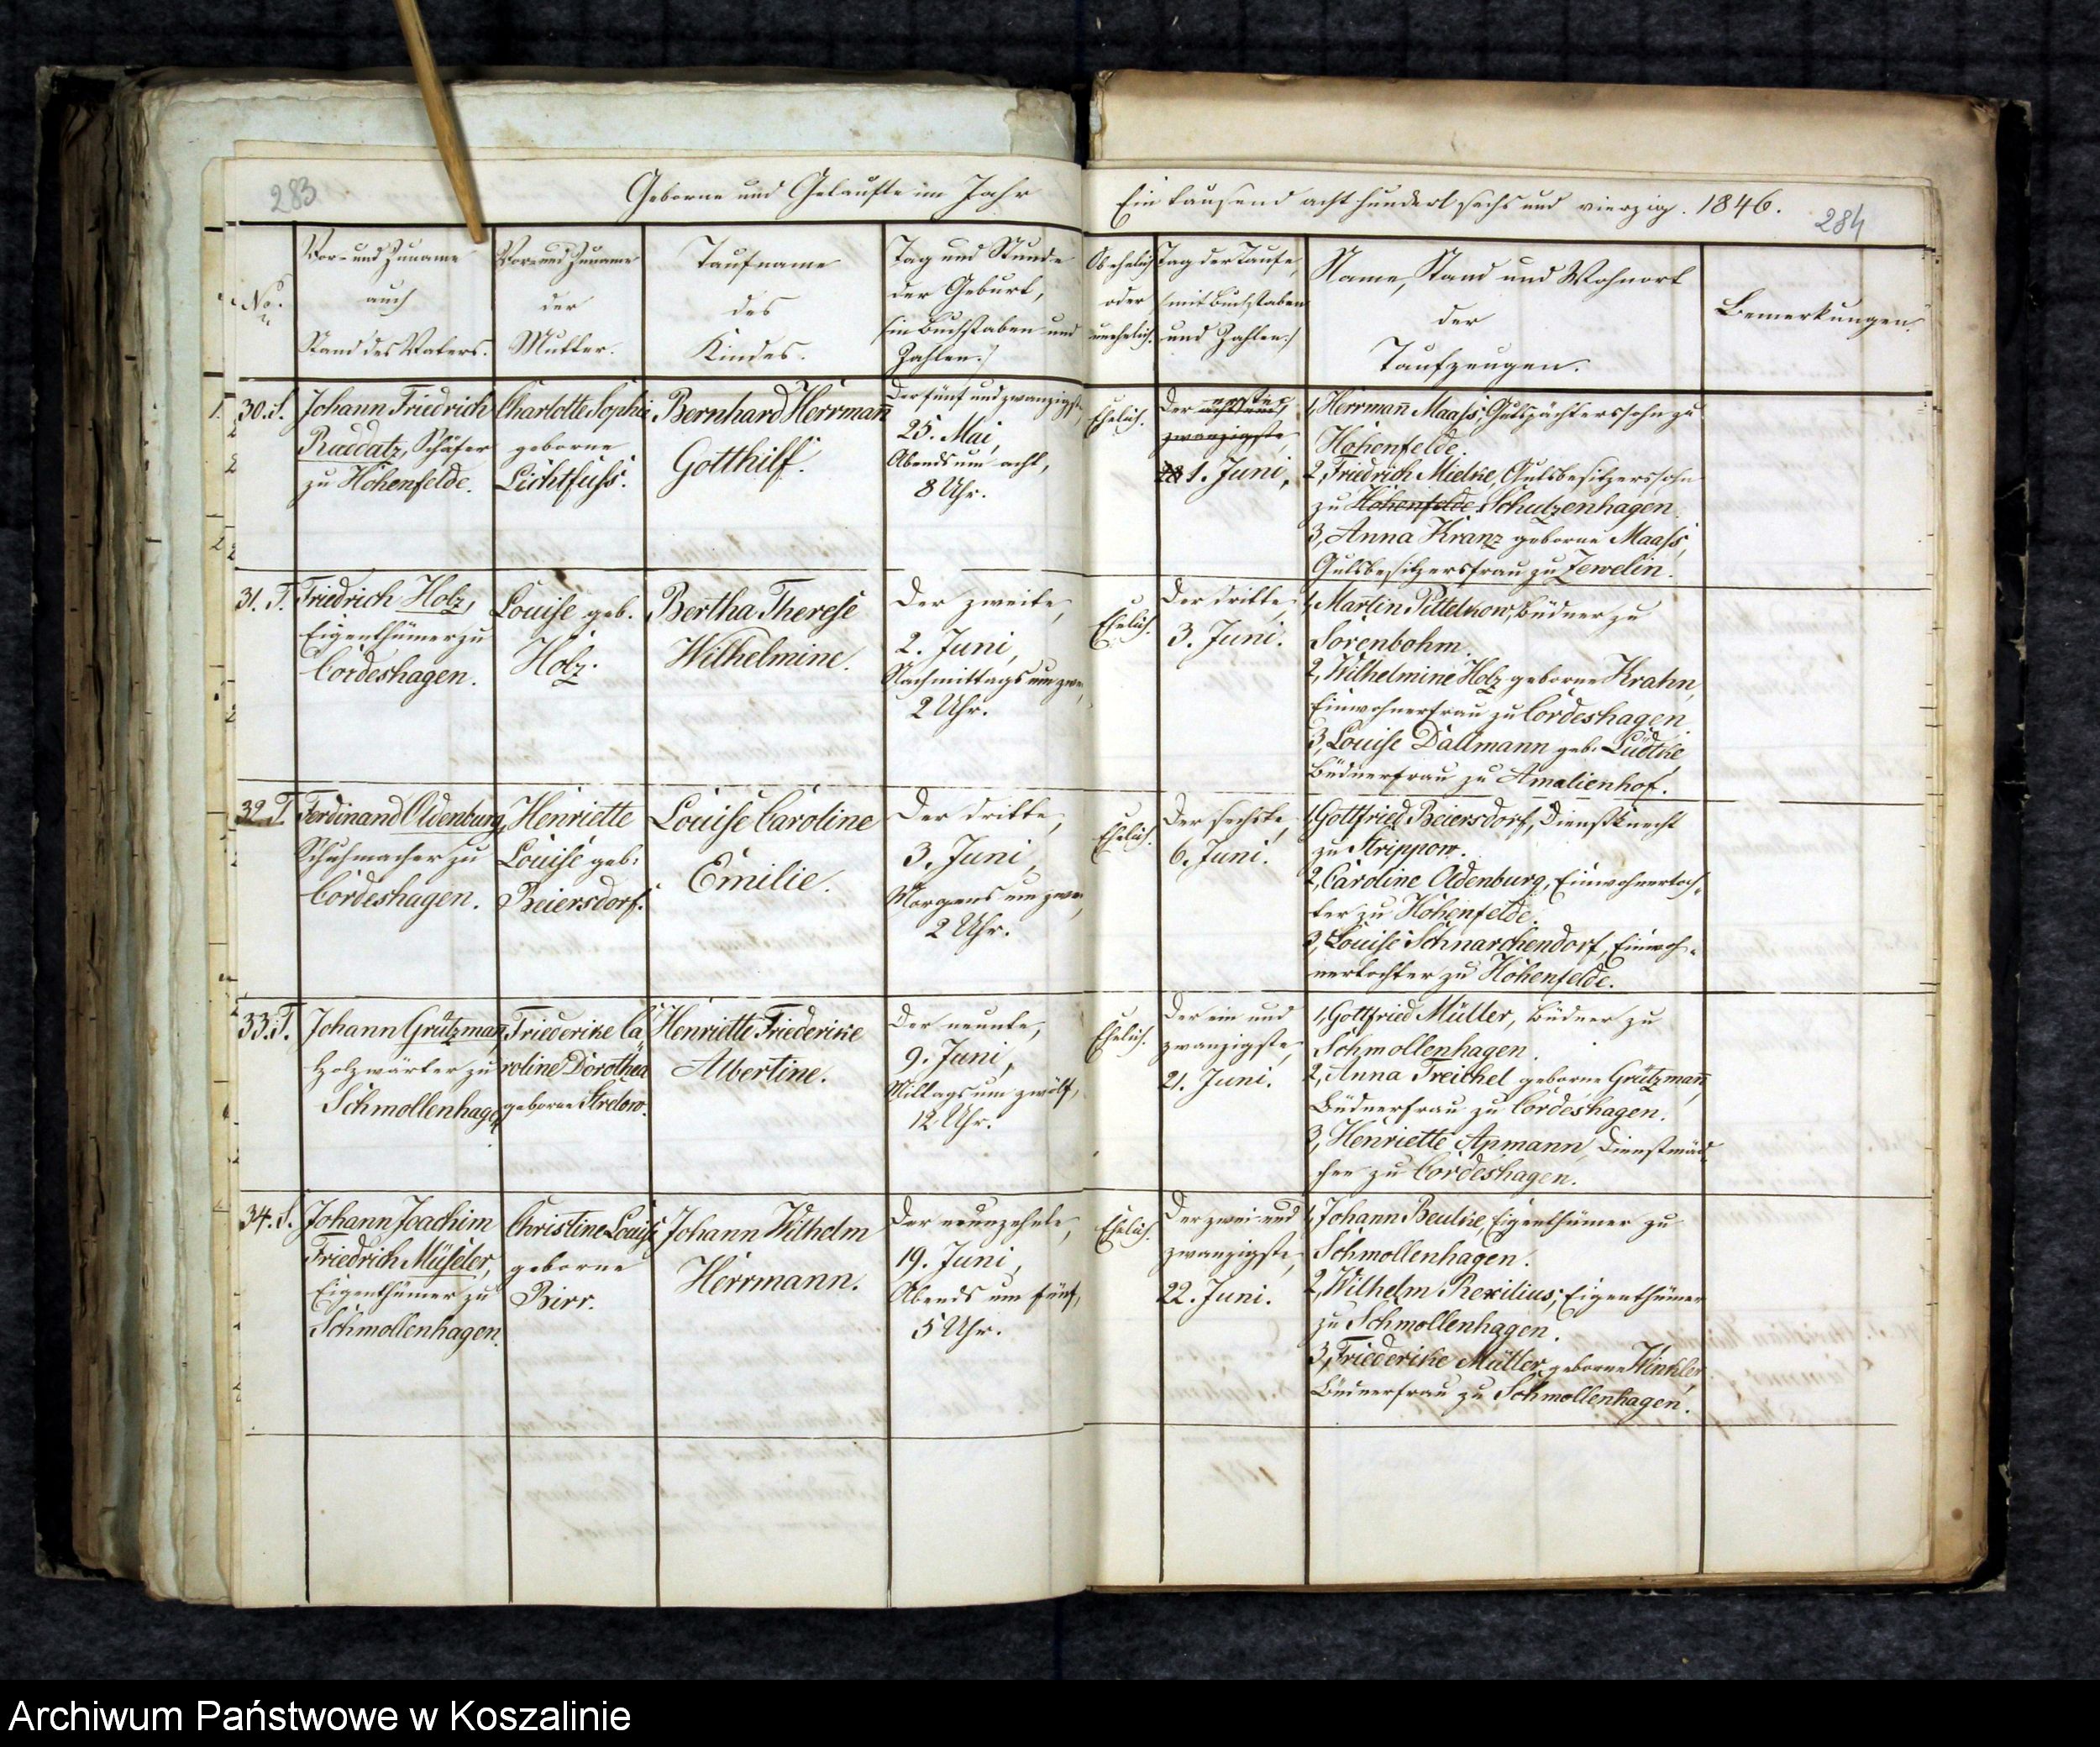 283
Geborne und Getaufte im Jahr
Ein tausend acht hundert sechs und vierzig. 1846.
284
No.
Vor- und Zuname
auch
Stand des Vaters.
Vor- und Zuname
der
Mutter.
Taufname
des
Kindes.
Tag und Stunde
der Geburt,
(in Buchstaben und
Zahlen.)
Ob ehelich
oder
unehelich.
Tag der Taufe,
(mit Buchstaben
und Zahlen.)
Name, Stand und Wohnort
der
Taufzeugen.
Bemerkungen.
30. S.
Johann Friedrich
Raddatz, Schäfer
zu Hohenfelde.
Charlotte Sophie
geborne
Lichtfuss.
Bernhard Herrmann̄
Gotthilf.
Der fünf und zwanzigste,
25. Mai,
Abends um acht,
8 Uhr.
Ehelich.
erste,
Der acht und
zwanzigste,
28 1. Juni,
1, Herrman̄ Maass, Gutspächterssohn zu
Hohenfelde.
2, Friedrich Mielke, Gutsbesitzerssohn
zu Hohenfelde. Schulzenhagen.
3, Anna Kranz geborne Maass,
Gutsbesitzersfrau zu Zewelin.
31. T.
Friedrich Holz,
Eigenthümer zu
Cordeshagen.
Louise geb.
Holz.
Bertha Therese
Wilhelmine.
Der zweite,
2. Juni,
Nachmittags um zwei,
2 Uhr.
Ehelich.
Der dritte,
3. Juni.
1, Martin Pittelkow, Büdner zu
Sorenbohm.
2, Wilhelmine Holz geborne Krahn,
Einwohnerfrau zu Cordeshagen
3, Louise Dallmann geb. Lüdtke,
Büdnerfrau zu Amalienhof.
32. T.
Ferdinand Oldenburg,
Schuhmacher zu
Cordeshagen.
Henriette
Louise geb.
Beiersdorf.
Louise Caroline
Emilie.
Der dritte,
3. Juni,
Morgens um zwei,
2 Uhr.
Ehelich.
Der sechste,
6. Juni.
1, Gottfried Beiersdorf, Dienstknecht
zu Strippow.
2, Caroline Oldenburg, Einwohnertoch-
ter zu Hohenfelde.
3, Louise Schnarchendorf, Einwoh-
nertochter zu Hohenfelde.
33. T.
Johann Grützman,
Holzwärter zu
Schmollenhagen
Friederike Ca
roline Dorothea
geborne Strelow.
Henriette Friederike
Albertine.
Der neunte,
9. Juni,
Mittags um zwölf,
12 Uhr.
Ehelich.
Der ein und
zwanzigste,
21. Juni.
1, Gottfried Müller, Büdner zu
Schmollenhagen.
2, Anna Treichel geborne Grützman̄,
Büdnerfrau zu Cordeshagen.
3, Henriette Apmann, Dienstmäd-
chen zu Cordeshagen.
34. S.
Johann Joachim
Friedrich Müseler,
Eigenthümer zu
Schmollenhagen.
Christine Louise
geborne
Birr.
Johann Wilhelm
Herrmann.
Der neunzehnte,
19. Juni,
Abends um fünf,
5 Uhr.
Ehelich.
Der zwei und
zwanzigste,
22. Juni.
1, Johann Beulke, Eigenthümer zu
Schmollenhagen.
2, Wilhelm Rexilius, Eigenthümer
zu Schmollenhagen.
3, Friederike Müller, geborne Winkler
Büdnerfrau zu Schmollenhagen.
Archiwum Państwowe w Koszalinie